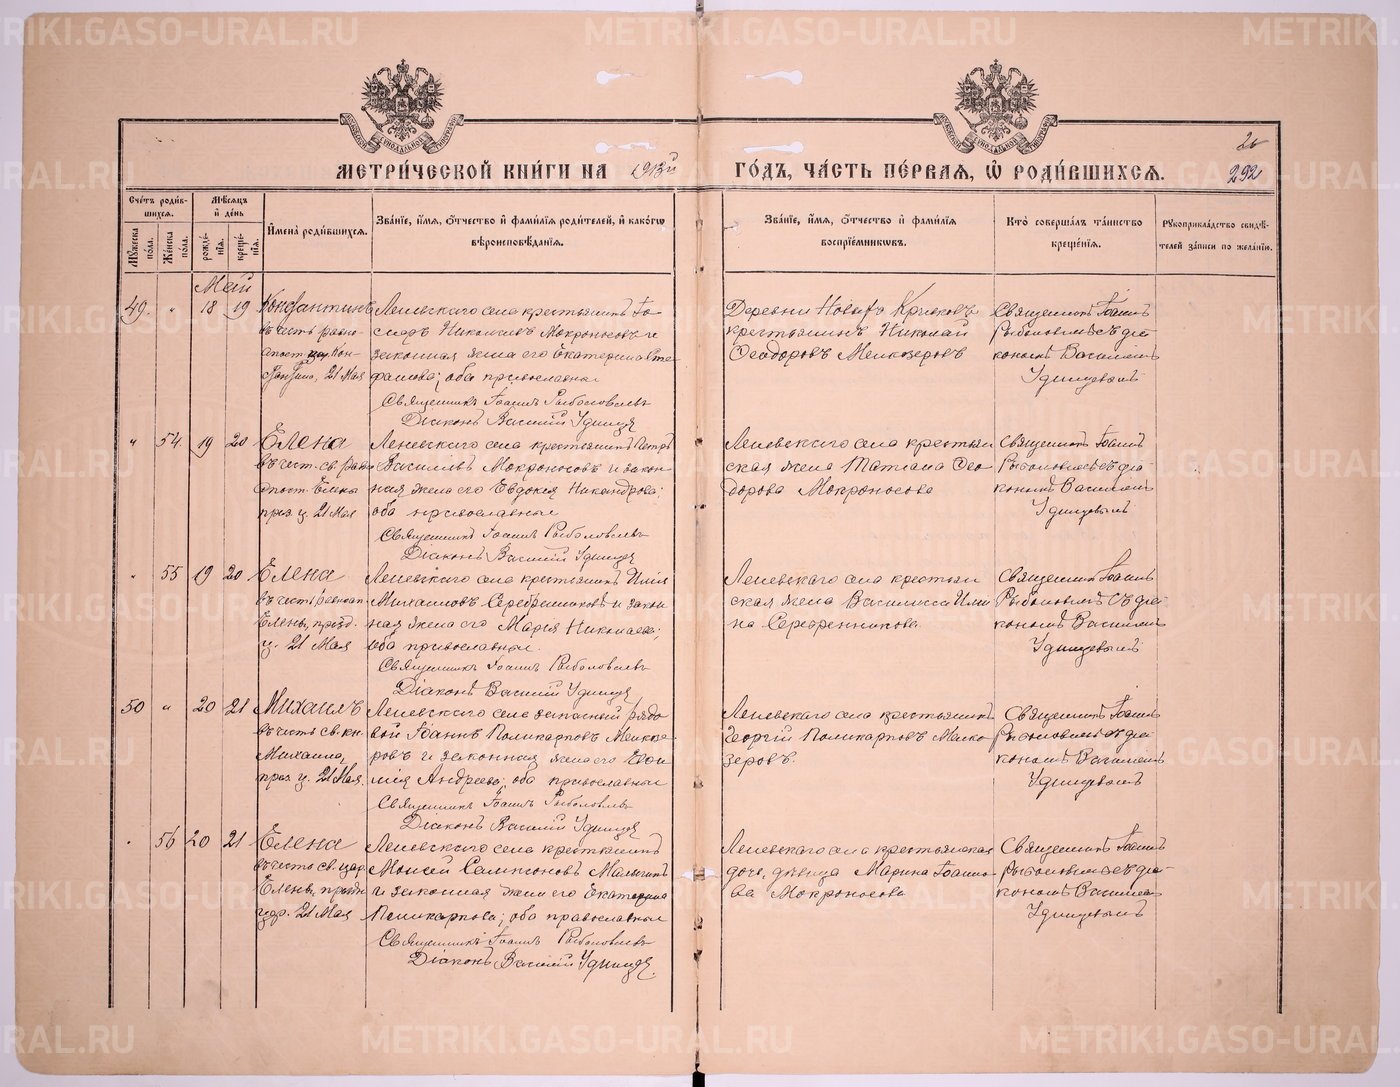 МЕТРИ́ЧЕСКОЙ КНИ́ГИ НА 1913й ГО́ДЪ, ЧА́СТЬ ПЕ́РВАЯ, Ѽ РОДИ́ВШИХСЯ.
26
292
Сче́тъ роди́в-
шихся.
Мꙋ́жеска по́ла.
Же́нска по́ла.
Мѣ́сяцъ
и҆ де́нь
рожде́нїя.
креще́нїя.
И҆мена̀ роди́вшихся.
Зва́нїе, и҆́мя, ѻ҆́тчество и҆ фами́лїя роди́телей, и҆ како́гѡ
вѣроисповѣ́данїя.
Зва́нїе, и҆́мя, ѻ҆́тчество и҆ фами́лїя
воспрїе́мникѡвъ.
Кто̀ соверша́лъ та́инство
креще́нїя.
Рꙋкоприкла́дство свидѣ́-
телей за́писи по жела́нїю.
Май
49. " 18 19 Константинъ
въ честь равно-
апост. цар. Кон-
стантина, 21 Мая
Леневскаго села крестьянинъ
Николаевъ Мокроносовъ и
законная жена его Екатерина Сте-
фанова; оба православные
Священникъ Іоаннъ Рыболовлевъ
Діаконъ Василій Удинцев
Деревни Новыхъ Кривковъ
крестьянинъ Николай
Ѳеодоровъ Мелкозеровъ
Священникъ Іоаннъ
Рыболовлевъ съ діа-
кономъ Василіемъ
Удинцевымъ
" 54 19 20 Елена
въ чест. св. равно
апост. Елены
праз. ц. 21 Мая
Леневскаго села крестьянинъ Петръ
Васильевъ Мокроносовъ и закон-
ная жена его Евдокія Никандрова;
оба православные
Священникъ Іоаннъ Рыболовлевъ
Діаконъ Василій Удинцев
Леневскаго села крестьян
ская жена Татіана Ѳео
дорова Мокроносова
Священникъ Іоаннъ
Рыболовлевъ съ діа-
кономъ Василіемъ
Удинцевымъ
" 55 19 20 Елена
въ честь равноап.
Елены, празд.
ц. 21 Мая
Леневскаго села крестьянинъ Илія
Михаиловъ Серебренниковъ и закон
ная жена его Марія Николаева;
оба православные.
Священникъ Іоаннъ Рыболовлевъ
Діаконъ Василій Удинцев
Леневскаго села крестьян
ская жена Василисса Или
на Серебренникова.
Священникъ Іоаннъ
Рыболовлевъ съ діа
кономъ Василіемъ
Удинцевымъ
50 " 20 21 Михаилъ
въ честь св. кн.
Михаила,
праз. ц. 21 Мая.
Леневскаго села запасный рядо
вой Іоаннъ Поликарповъ Мелкозе-
ровъ и законная жена его
Андреева; оба православные
Священникъ Іоаннъ Рыболовлевъ
Діаконъ Василій Удинцев
Леневскаго села крестьянинъ
Георгій Поликарповъ Мелко
зеровъ.
Священникъ Іоаннъ
Рыболовлевъ съ діа
кономъ Василіемъ
Удинцевымъ
" 56 20 21 Елена
въ честь св. цар.
Елены, празд.
цр. 21 Мая
Леневскаго села крестьянинъ
Моисей Сампсоновъ Малыгинъ
и законная жена его Екатерина
Поликарпова; оба православные
Священникъ Іоаннъ Рыболовлевъ
Діаконъ Василій Удинцев.
Леневскаго села крестьянская
дочь, дѣвица Марина Іоанно
ва Мокроносова
Священникъ Іоаннъ
Рыболовлевъ съ діа-
кономъ Василіемъ
Удинцевымъ
METRIKI.GASO-URAL.RU